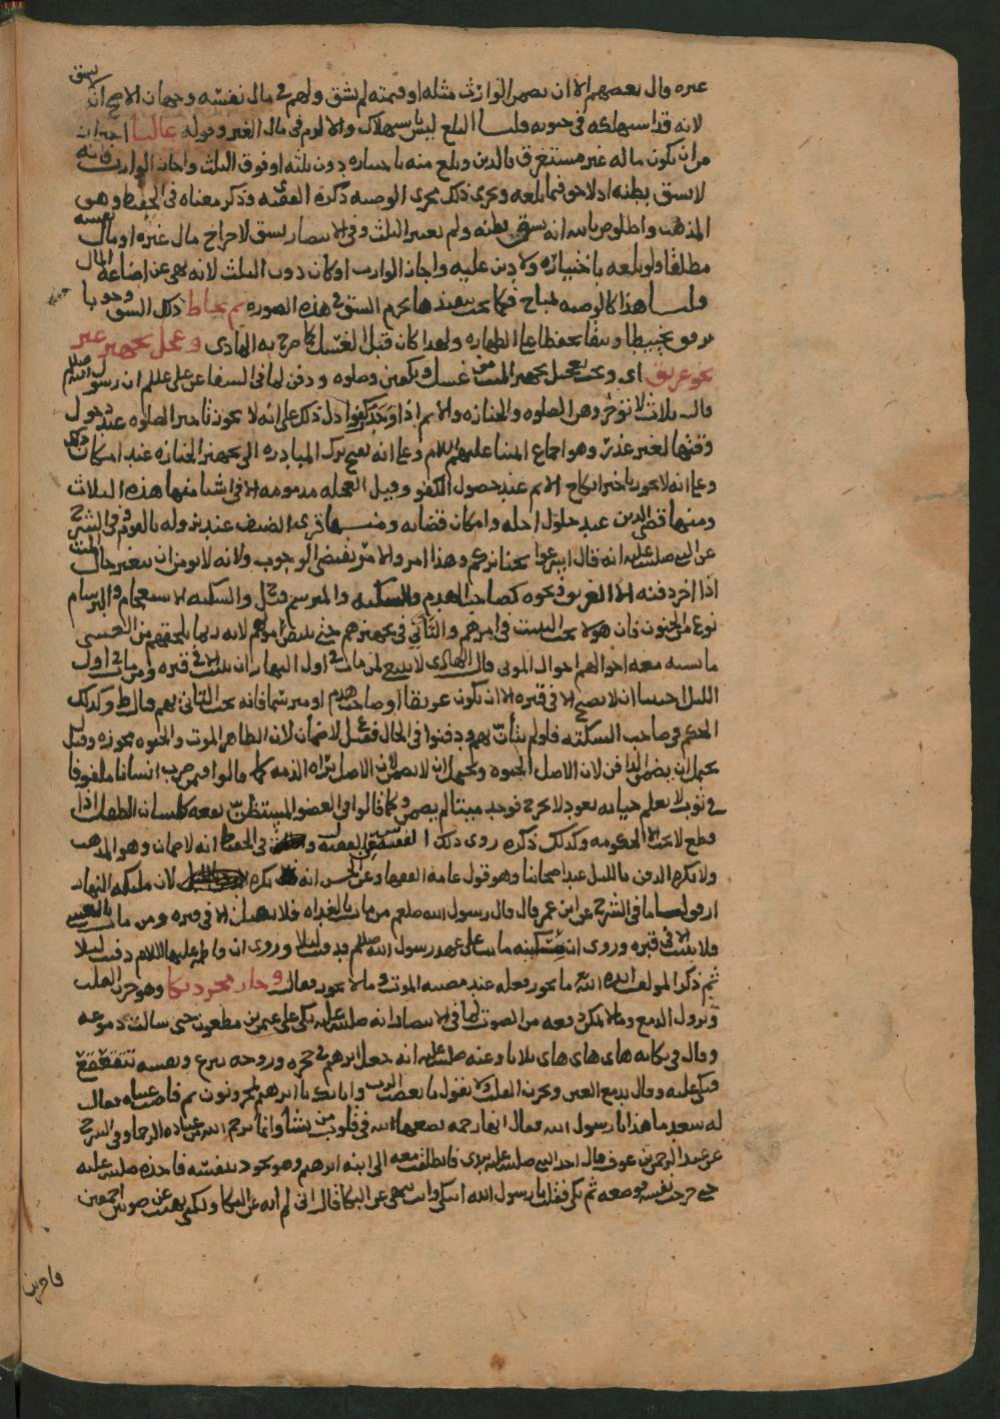 غيره وقال بعضهم الا ان يضمن الوارث مثله او قيمته لم يشق ولهم في مال نفسه وجهان الاصح ان يشق
لانه قد استهلكه في حيوته قلنا البلع ليس باستهلاك والا لزم في مال الغير وقوله غالبا احتراز
من ان يكون ماله غير مستغرق بالدين وبلع منه باختياره دون ثلثه او فوق الثلث واجاز الوارث فانه
لا يشق بطنه اذ لا حق فيما بلعه وجرى ذلك مجرى الوصيه ذكره الفقيه وذكر معناه في الحفيظ وهو
المذهب واطلق انه يشق بطنه ولم يعتبر الثلث وفي الانتصار يشق لاخراج مال غيره او مال نفسه
مطلقا ولو بلعه باختياره ولا دين عليه واجاز الوارث او كان دون الثلث لانه نهي عن اضاعة المال
قلنا هذا كالوصيه بمباح فكما يجب تنفيذها يحرم الشق في هذه الصوره ثم يخاط ذلك الشق وجوبا
تخييطا تحفظا على الطهاره ولهذا كان قبل الغسل كما صرح به الهادي وعجل تجهيز غير
نحو غريق اي ويجب تعجيل تجهيز الميت من غسل وتكفين وصلوه ودفن لما في الشفا عن علي عللم ان رسول الله صلعم
قال ثلاث لا تؤخر وهن الصلوه والجنازه والايم اذا وجدت كفوا دل ذلك على انه لا يجوز تاخير الصلوه عند دخول
وقتها لغير عذر وهو اجماع ائمتنا عليهم السلام وعلى انه يقبح ترك المبادره الى تجهيز الجنازه عند امكان ذلك
وعلى انه لا يجوز تاخير انكاح الايم عند حصول الكفو وقيل العجله مذمومه الا في اشيا منها هذه الثلاث
ومنها قضى الدين عند حلول اجله وامكان قضائه ومنها قرى الضيف عند نزوله بالقوم وفي الشرح
عن النبي صلى الله عليه انه قال اسرعوا بجنائزكم وهذا امر والامر يقتضي الوجوب ولانه لا يؤمن ان يتغير حال الميت
اذا اخر دفنه الا الغريق ونحوه كصاحب الهدم والسكته والمبرسم والسكته الاستعجام والبرسام
نوع من الجنون فان هولا يجب التثبت في امرهم والتاني في تجهيزهم حتى امرهم لانه ربما يلحقهم من الغشي
ما تشبه معه احوالهم احوال الموتى قال الهادي لا ينبغي لمن مات في اول النهار ان يبيت الا في قبره ومن مات اول
الليل احببنا ان لا يصبح الا في قبره الا ان يكون غريقا او صاحب هدم او مبرسما فانه يجب التاني بهم قال ط وكذلك
الحكم في صاحب السكته فلو لم يتأن بهم ودفنوا في الحال فقيل لا ضمان لان الظاهر الموت والحيوه مجوزه وقيل
يحتمل ان يضمن الدافن لان الاصل الحيوه ويحتمل ان لا يضمن لان الاصل براه الذمه كما قالوا فيمن ضرب انسانا ملفوفا
في ثوب لا يعلم حياته بعود لا يجرح فوجد ميتا لم يضمن وكما قالوا في العضو المستظن نفعه كلسان الطفل اذا
قطع لا تجب الا الحكومه وكذلك ذكره روى ذلك الفقيه عن الفقيه وفي الحفيظ انه لا ضمان وهو المذهب
ولا يكره الدفن بالليل عند اصحابنا وهو قول عامه الفقها وعن الحسن انه يكره لان ملئكه النهار
ارق قلنا ما في الشرح عن ابن عمر قال قال رسول الله صلعم من مات بالغداه فلا يقيلن الا في قبره ومن مات بالعشي
فلا يبيت الا في قبره وروى ان مسكينه ماتت على عهد رسول الله صلعم فدفنت ليلا وروي ان فاطمه عليها السلام دفنت ليلا
ثم ذكر المولف ايده الله تع ما يجوز فعله عند مصيبه الموت وما لا يجوز فقال وجاز مجرد بكا وهو حزن القلب
ونزول الدمع وما لا يمكن دفعه من الصوت لما في الانتصار انه صلى الله عليه بكى على عثمن بن مظعون حتى سالت دموعه
وقال في بكائه هاي هاي هاي ثلاثا وعنه صلى الله عليه انه جعل ابرهيم في حجره وروحه تنزع ونفسه تتقعقع
فبكى عليه وقال تدمع العين ويحزن القلب ولا نقول ما يغضب الرب وانا بك يا ابرهيم لمحزونون ثم فاضت عيناه فقال
له سعد ما هذا يا رسول الله فقال انها رحمه يضعها الله في قلوب من يشا وانما يرحم الله من عباده الرحما وفي الشرح
عن عبد الرحمن بن عوف قال اخذ النبي صلى الله عليه بيدي فانطلقت معه الى ابنه ابرهيم وهو يجود بنفسه فاخذه صلى الله عليه
حتى خرجت نفسه فوضعه ثم بكى فقلت يا رسول الله اتبكي وانت تنهى عن البكا قال اني لم انه عن البكا ولكني نهيت عن صوتين احمقين
فاجرين